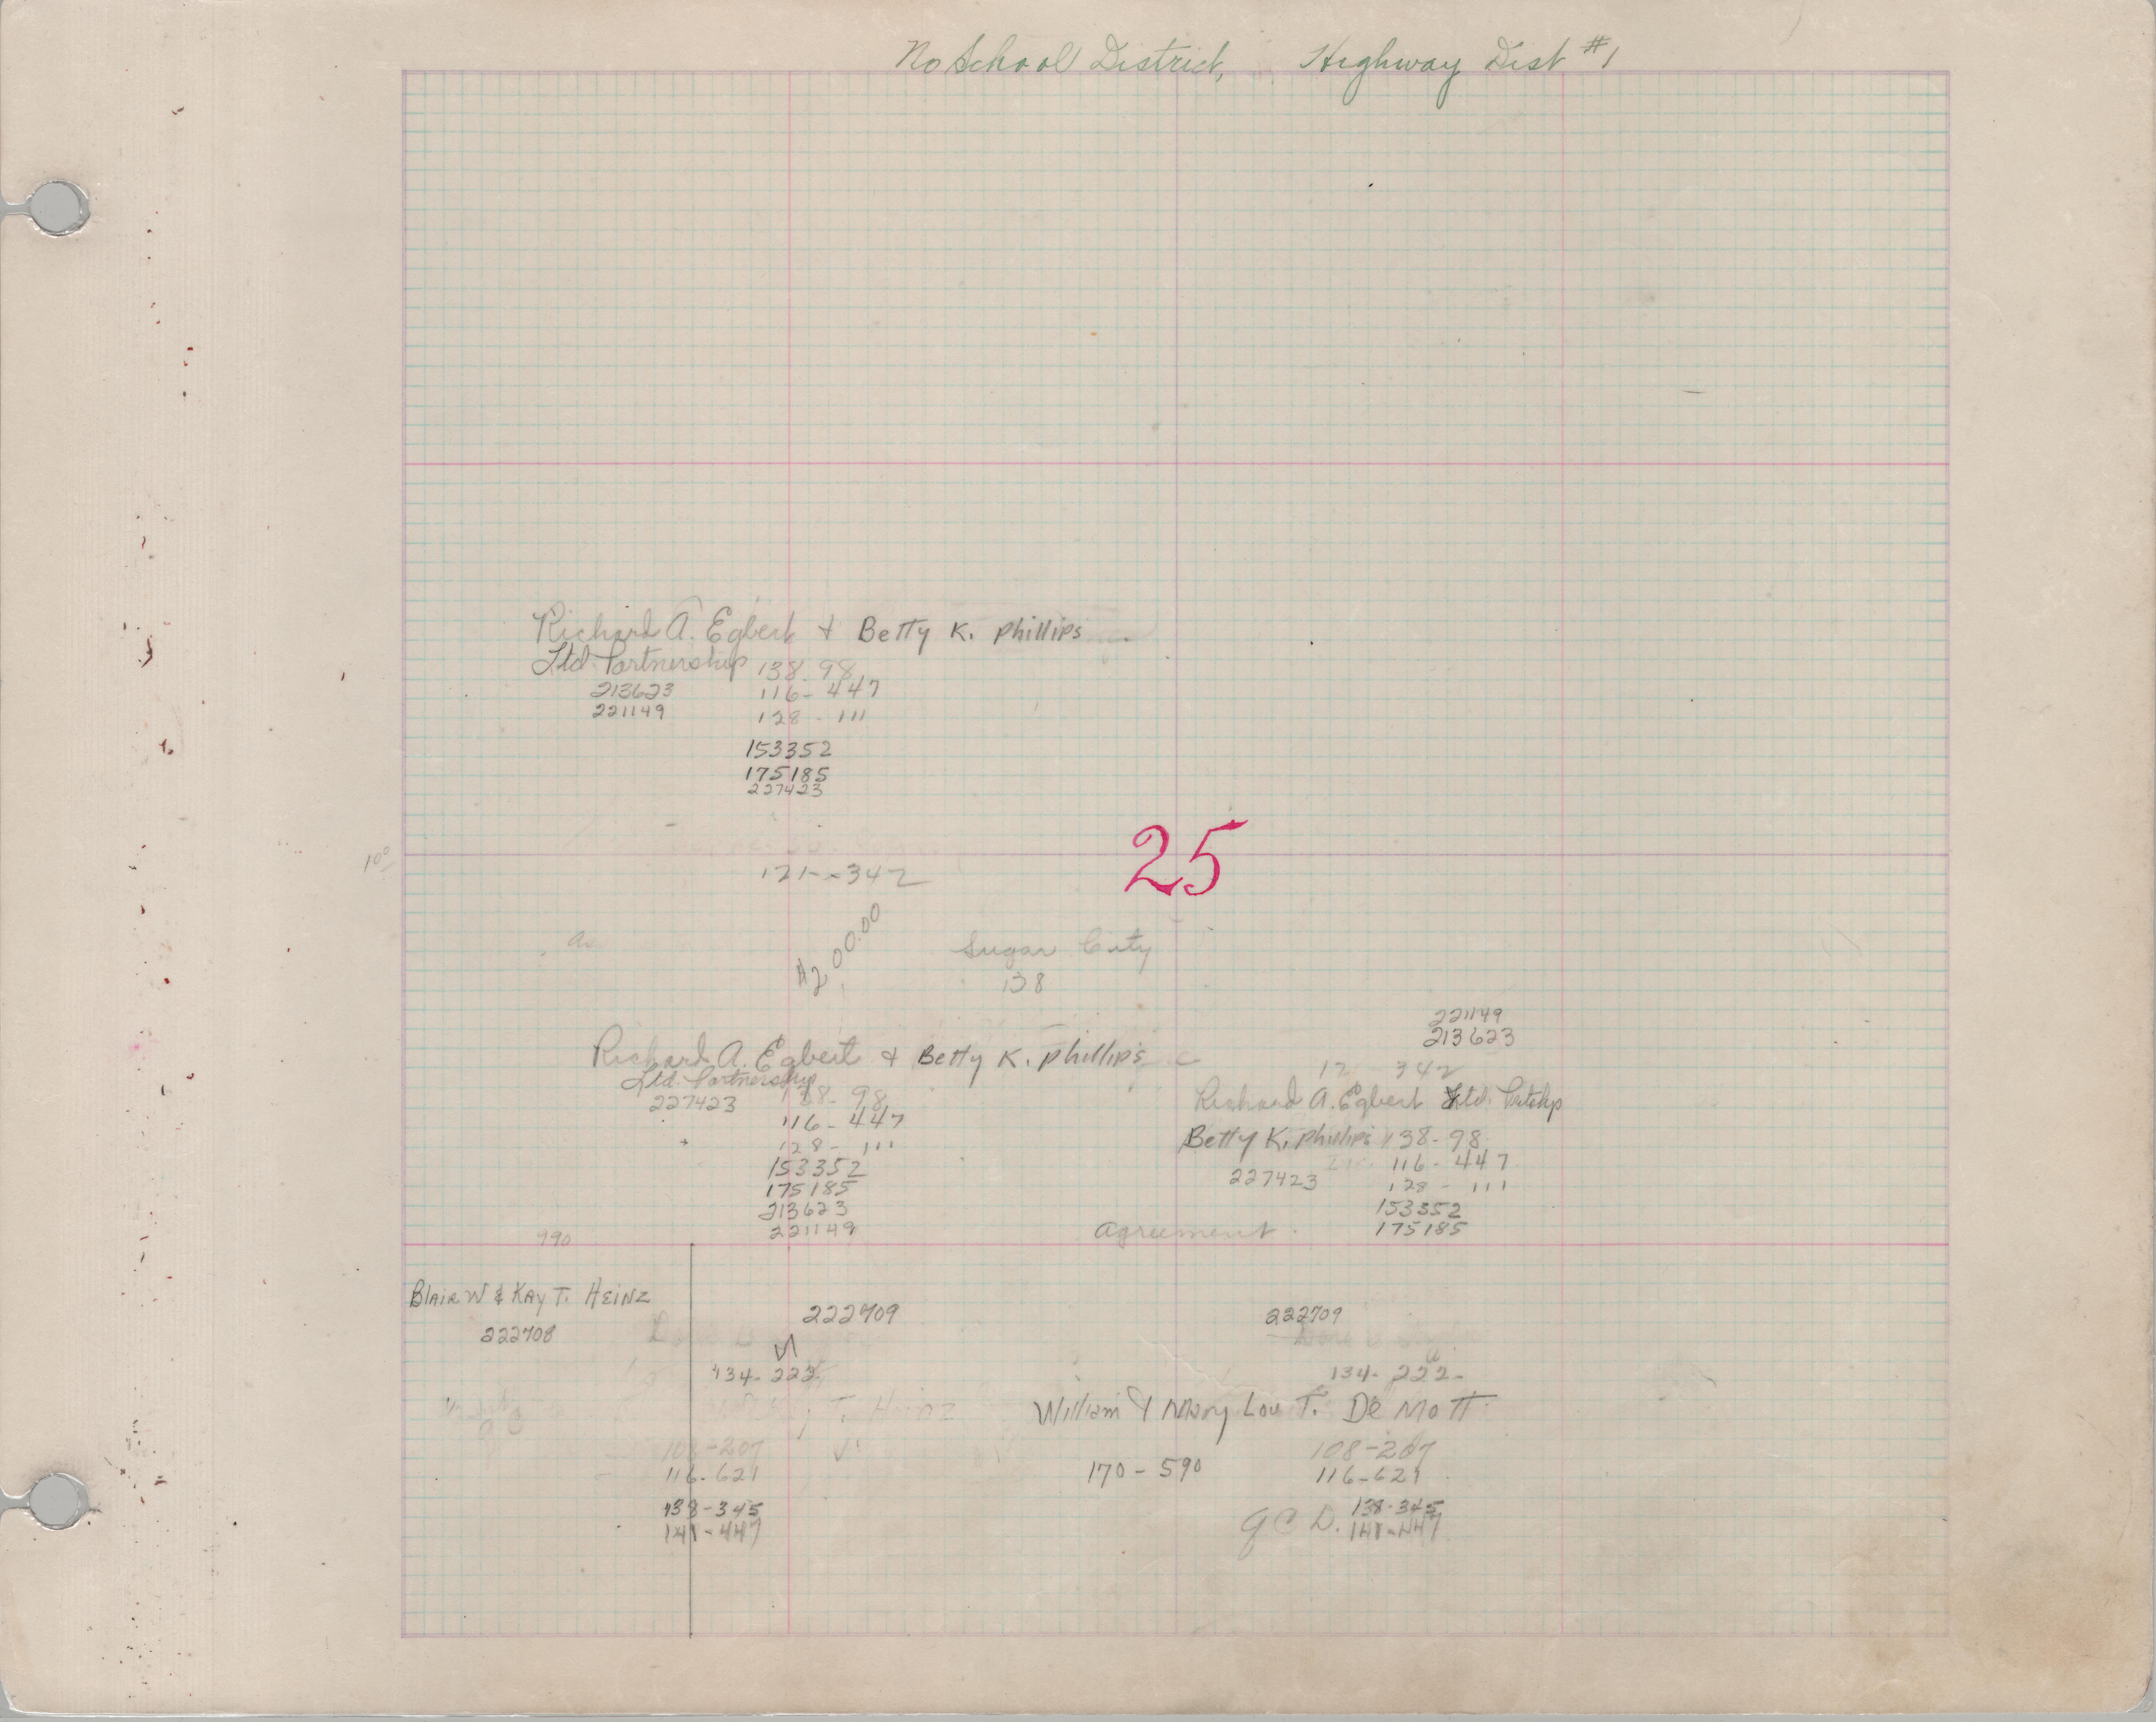 No School District, Highway Dist #1
Richard A. Egbert & Betty K. Phillips
Ltd. Partnership 138-98
213623 116-447
221149 128-111
153352
175185
227423
25
$200.00
Sugar City
138
221149
213623
Richard A. Egbert & Betty K. Phillips
Ltd. Partnership
227423 138-98
116-447
128-111
153352
175185
213623
221149
Richard A. Egbert Ltd. Prtshp
Betty K. Phillips 138-98
116-447
227423 128-111
153352
175185
Agreement
990
Blair W & Kay T. Heinz
222708
222709
134-222
108-207
116-621
138-345
141-447
222709
134-222
William & Mary Lou T. De Mott
108-207
170-590 116-621
138-345
QCD. 141-447